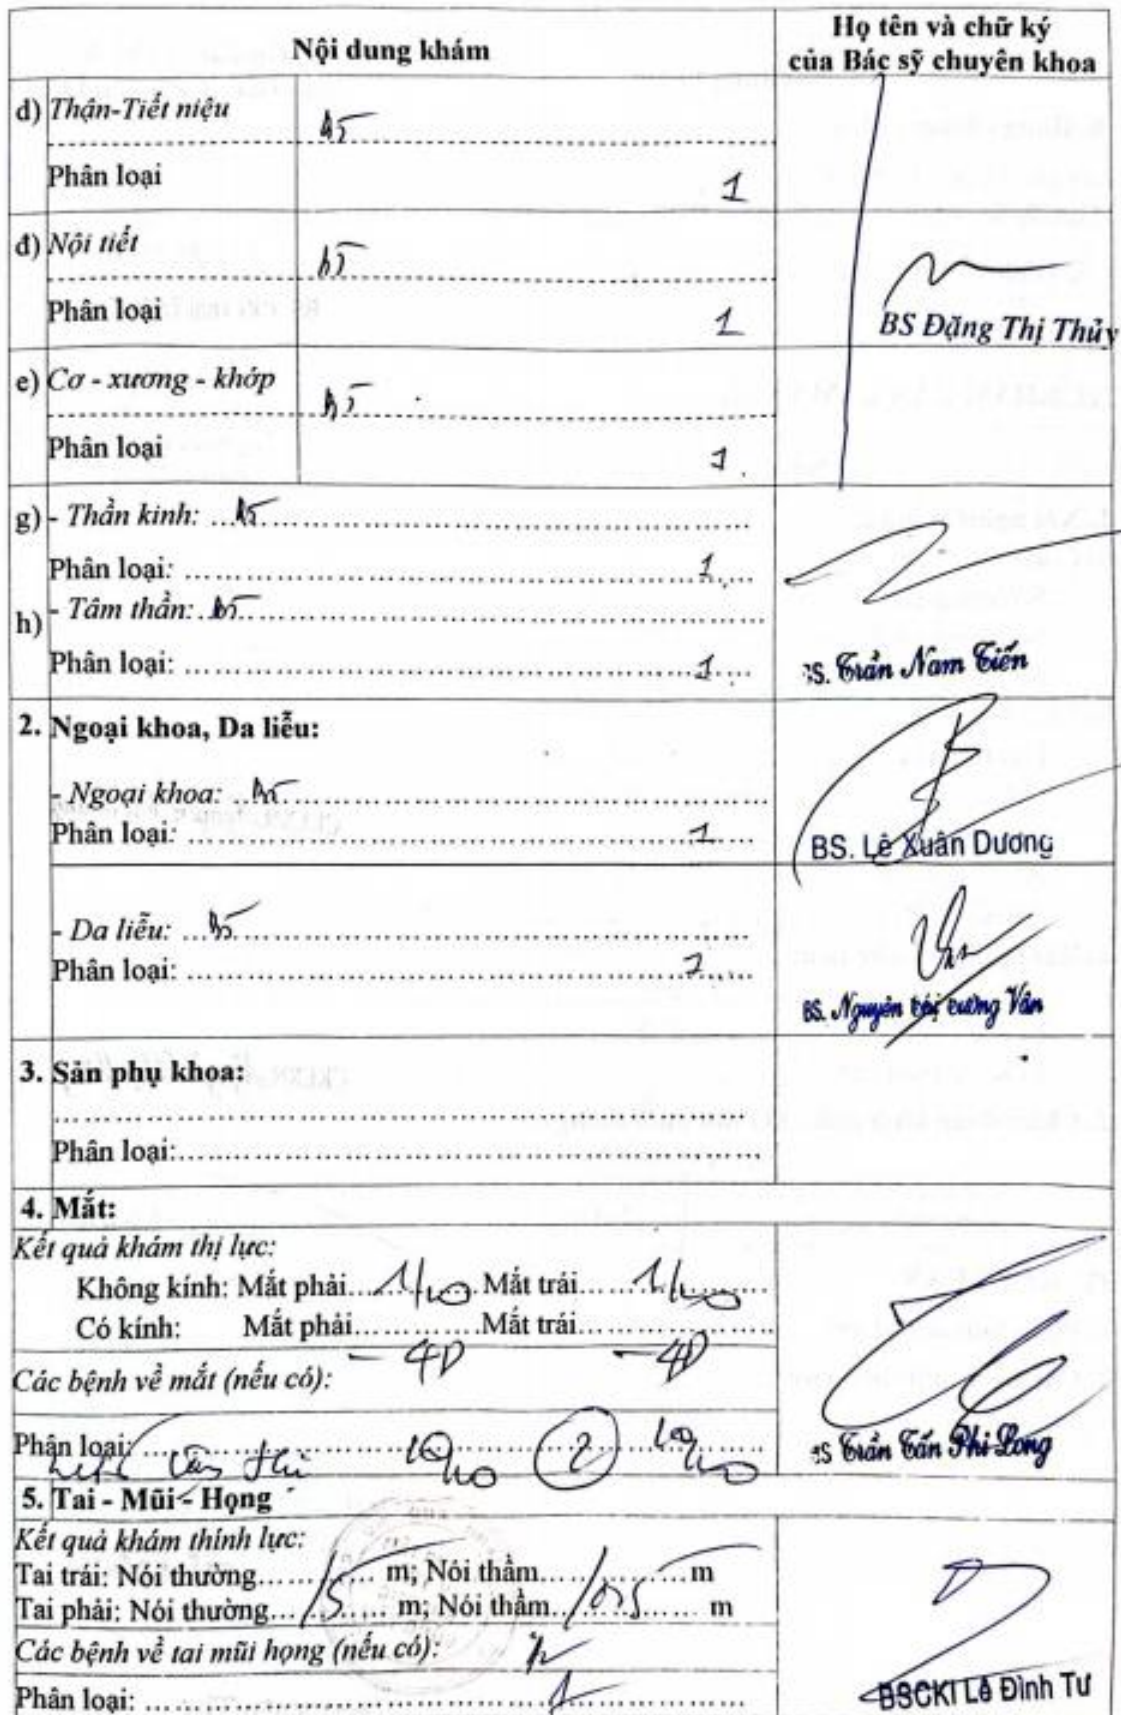 Nội dung khám
Họ tên và chữ ký
của Bác sỹ chuyên khoa
d) Thận-Tiết niệu
BT
Phân loại 1
đ) Nội tiết
BT
Phân loại 1
BS Đặng Thị Thủy
e) Cơ - xương - khớp
BT
Phân loại 1
g) - Thần kinh: BT
Phân loại: 1
h) - Tâm thần: BT
Phân loại: 1
BS. Trần Nam Tiến
2. Ngoại khoa, Da liễu:
- Ngoại khoa: BT
Phân loại: 1
BS. Lê Xuân Dương
- Da liễu: BT
Phân loại: 1
BS. Nguyễn thị tường Vân
3. Sản phụ khoa:
Phân loại:
4. Mắt:
Kết quả khám thị lực:
Không kính: Mắt phải 1/10 Mắt trái 1/10
Có kính: Mắt phải Mắt trái
-4D -4D
Các bệnh về mắt (nếu có):
Phân loại:
10/10 2 10/10
BS Trần Tấn Phi Long
5. Tai - Mũi - Họng
Kết quả khám thính lực:
Tai trái: Nói thường m; Nói thầm m
Tai phải: Nói thường 5 m; Nói thầm 0,5 m
Các bệnh về tai mũi họng (nếu có):
Phân loại: 1
BSCKI Lê Đình Tư